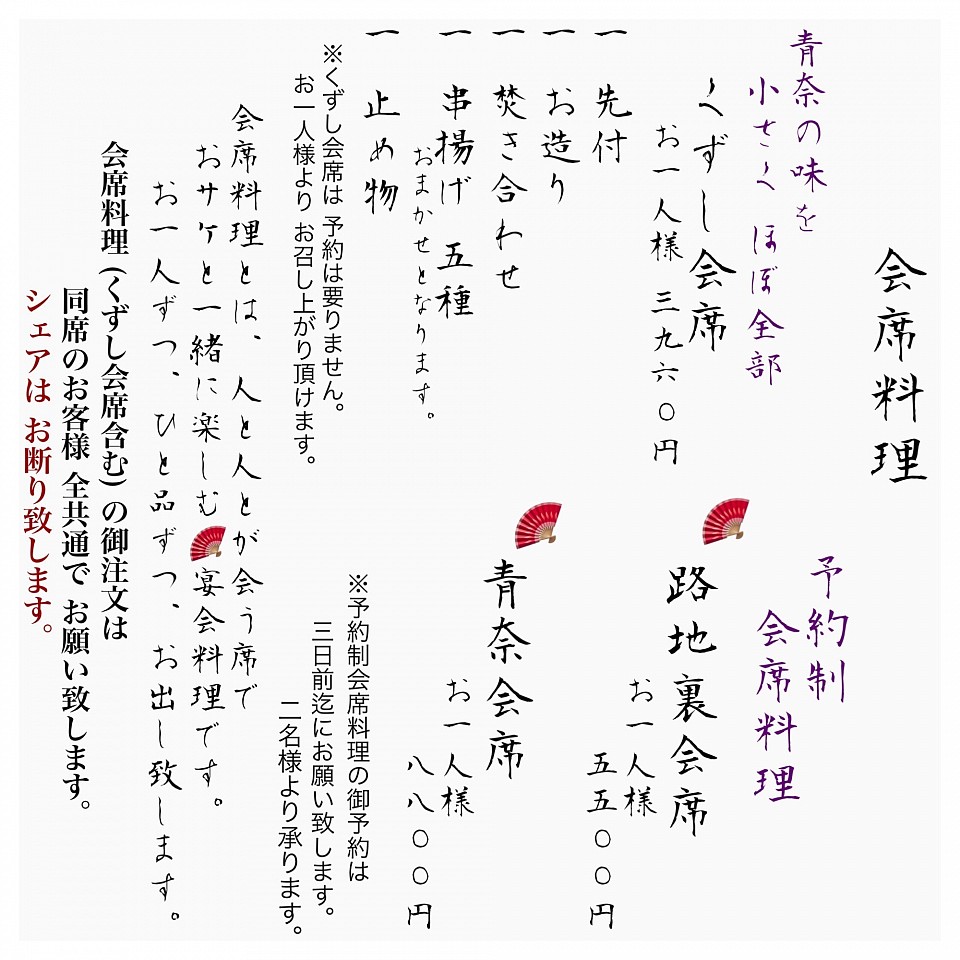 会席料理
青奈の味を
小さく ほぼ全部
くずし会席
お一人様 三九六〇円
一 先付
一 お造り
一 焚き合わせ
一 串揚げ 五種
おまかせとなります。
一 止め物
※くずし会席は 予約は要りません。
お一人様より お召し上がり頂けます。
予約制
会席料理
路地裏会席
お一人様
五五〇〇円
青奈会席
お一人様
八八〇〇円
※予約制会席料理の御予約は
三日前迄にお願い致します。
二名様より承ります。
会席料理とは、人と人とが会う席で
おサケと一緒に楽しむ 宴会料理です。
お一人ずつ、ひと品ずつ、お出し致します。
会席料理 (くずし会席含む) の御注文は
同席のお客様 全共通で お願い致します。
シェアは お断り致します。